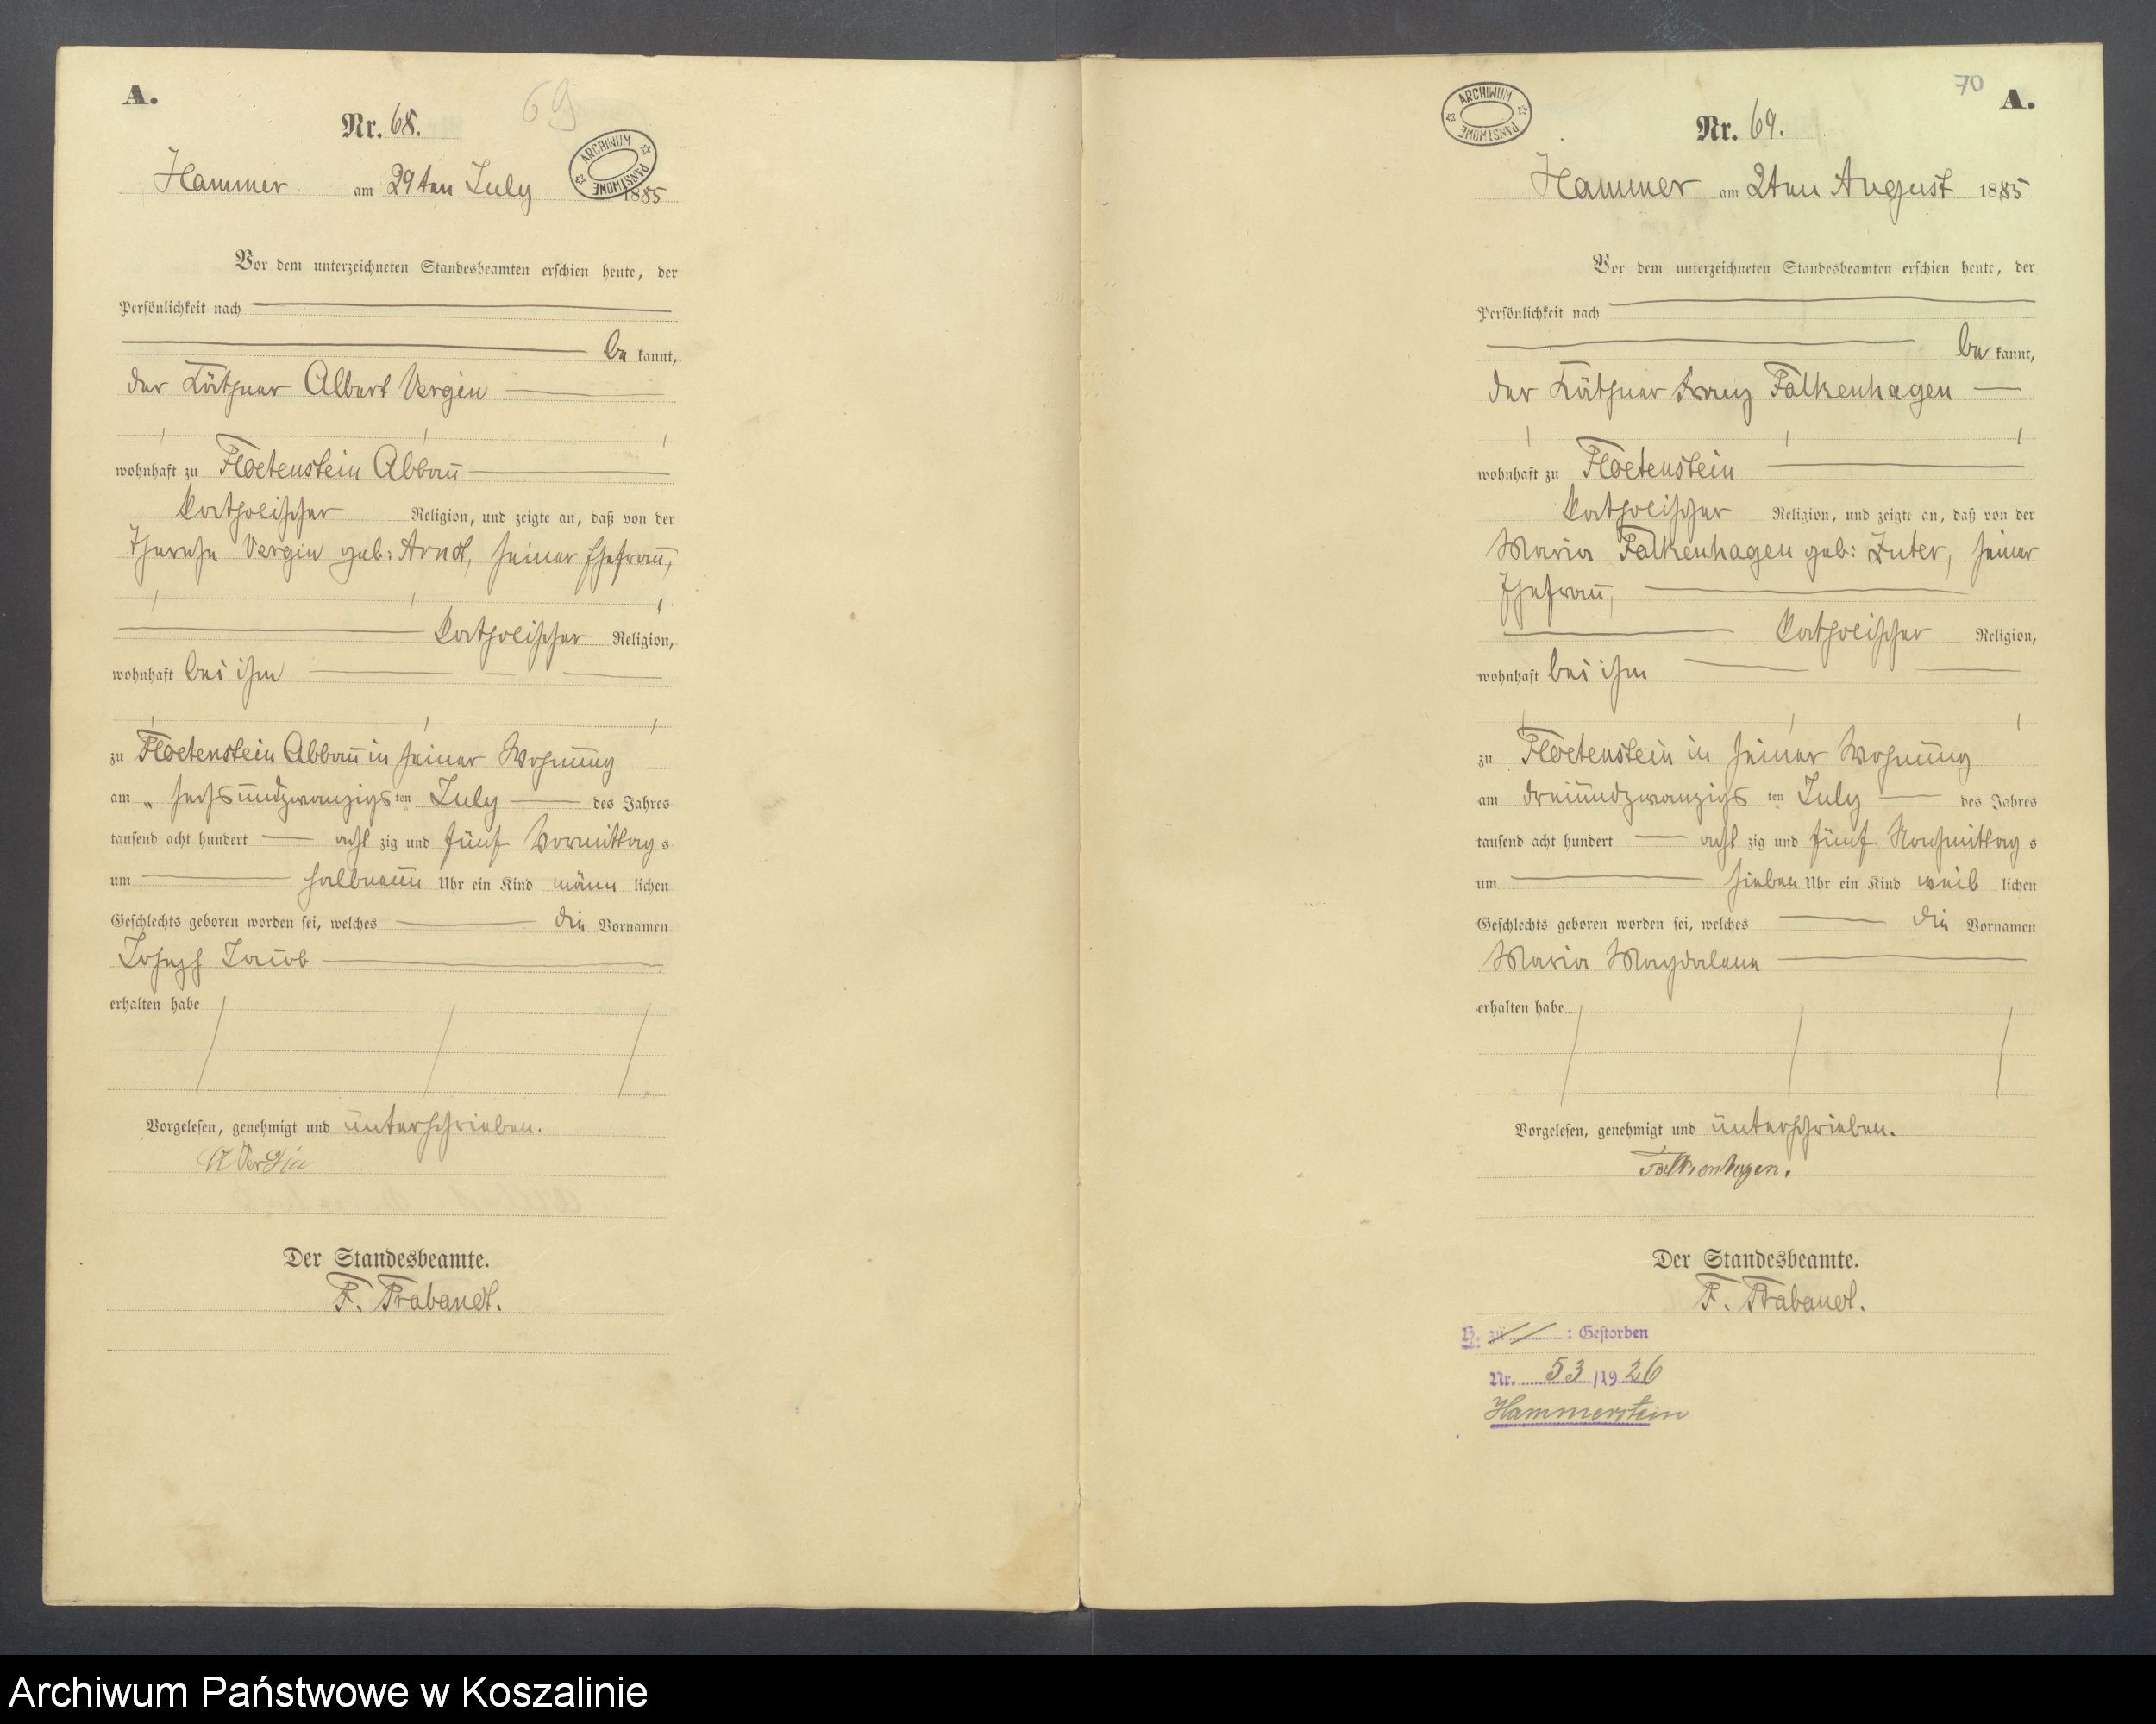 A.
69
Nr. 68.
ARCHIWUM PAŃSTWOWE
Hammer am 29ten July 1885
Vor dem unterzeichneten Standesbeamten erschien heute, der
Persönlichkeit nach
be kannt,
der Käthner Albert Vergin
wohnhaft zu Floetenstein Abbau
katholischer Religion, und zeigte an, daß von der
Therese Vergin geb: Arndt, seiner Ehefrau,
katholischer Religion,
wohnhaft bei ihm
zu Floetenstein Abbau in seiner Wohnung
am " sechsundzwanzigs ten July des Jahres
tausend acht hundert acht zig und fünf Vormittag s
um halbneun Uhr ein Kind männ lichen
Geschlechts geboren worden sei, welches die Vornamen
Joseph Jacob
erhalten habe
Vorgelesen, genehmigt und unterschrieben.
A Vergin
Der Standesbeamte.
F. Trabandt.
70
A.
ARCHIWUM PAŃSTWOWE
Nr. 69.
Hammer am 2ten August 1885
Vor dem unterzeichneten Standesbeamten erschien heute, der
Persönlichkeit nach
be kannt,
der Käthner Franz Falkenhagen
wohnhaft zu Floetenstein
katholischer Religion, und zeigte an, daß von der
Maria Falkenhagen geb: Zuter, seiner
Ehefrau,
katholischer Religion,
wohnhaft bei ihm
zu Floetenstein in seiner Wohnung
am dreiundzwanzigs ten July des Jahres
tausend acht hundert acht zig und fünf Nachmittag s
um sieben Uhr ein Kind weib lichen
Geschlechts geboren worden sei, welches die Vornamen
Maria Magdalena
erhalten habe
Vorgelesen, genehmigt und unterschrieben.
Falkenhagen.
Der Standesbeamte.
F. Trabandt.
H. zu : Gestorben
Nr. 53/1926
Hammerstein
Archiwum Państwowe w Koszalinie